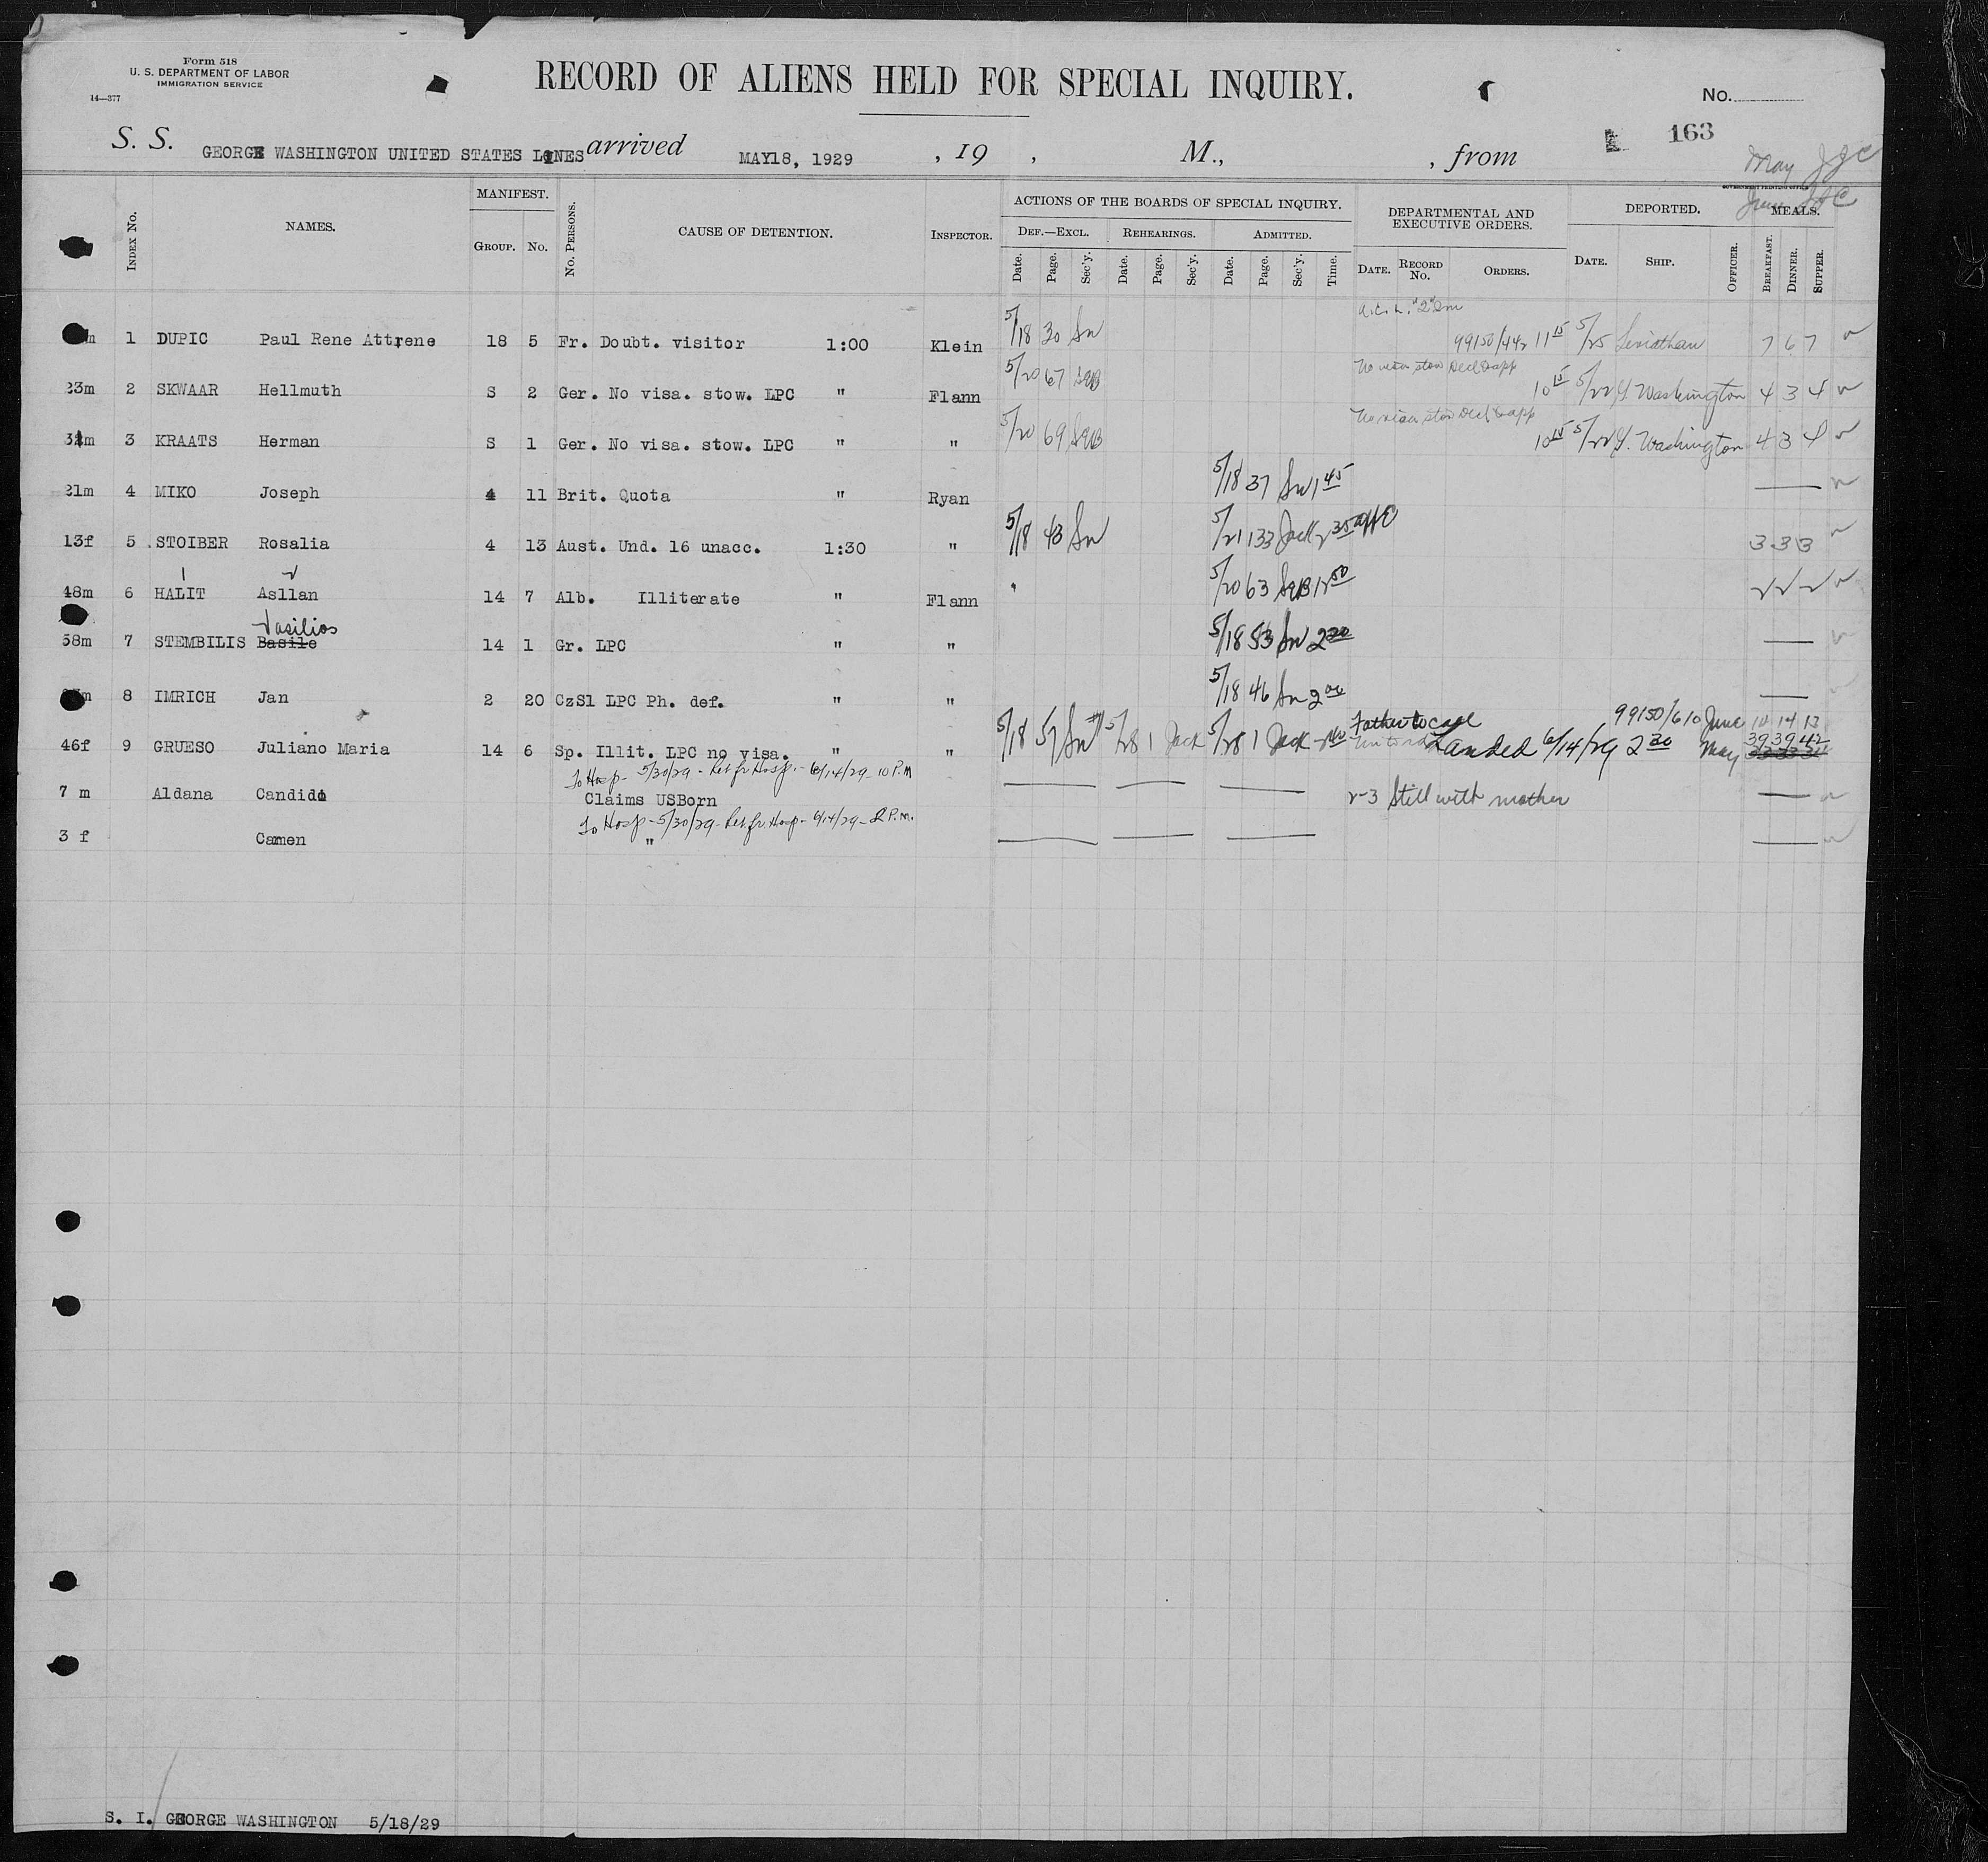 Form 518
U. S. DEPARTMENT OF LABOR
IMMIGRATION SERVICE
14—377
RECORD OF ALIENS HELD FOR SPECIAL INQUIRY.
No.
163
S. S. GEORGE WASHINGTON UNITED STATES LINES arrived MAY18, 1929 , 19 , M., , from
May JJC
June
GOVERNMENT PRINTING OFFICE
INDEX NO. NAMES. MANIFEST. GROUP. NO. NO. PERSONS. CAUSE OF DETENTION. INSPECTOR. ACTIONS OF THE BOARDS OF SPECIAL INQUIRY. DEPARTMENTAL AND EXECUTIVE ORDERS. DEPORTED. MEALS.
DEF.—EXCL. REHEARINGS. ADMITTED.
Date. Page. Sec'y. Date. Page. Sec'y. Date. Page. Sec'y. Time. DATE. RECORD NO. ORDERS. DATE. SHIP. OFFICER. BREAKFAST. DINNER. SUPPER.
m 1 DUPIC Paul Rene Attrene 18 5 Fr. Doubt. visitor 1:00 Klein 5/18 30 Sn 99150/442 11 15 5/25 Leviathan 7 6 7
No visa stow Decl & app
23m 2 SKWAAR Hellmuth S 2 Ger. No visa. stow. LPC " Flann 5/20 67 10 15 5/22 G. Washington 4 3 4
No visa stow Decl & app
32m 3 KRAATS Herman S 1 Ger. No visa. stow. LPC " " 5/20 69 10 15 5/22 G. Washington 4 3 4
21m 4 MIKO Joseph 4 11 Brit. Quota " Ryan 5/18 37 Sn 1 45
13f 5 STOIBER Rosalia 4 13 Aust. Und. 16 unacc. 1:30 " 5/18 43 Sn 5/21 133 Jack 2 35 3 3 3
48m 6 HALIT Asllan 14 7 Alb. Illiterate " Flann 5/20 63 12 50
Vasilios
58m 7 STEMBILIS Basile 14 1 Gr. LPC " " 5/18 53 Sn 2 20
m 8 IMRICH Jan 2 20 CzSl LPC Ph. def. " " 5/18 46 Sn 2 00
Father to call 99150/610 June 10 14 13
46f 9 GRUESO Juliano Maria 14 6 Sp. Illit. LPC no visa. " " 5/18 57 Sn 5/28 1 Jack 5/28 1 Jack Landed 6/14/29 2 30 May 39 39 42
To Hosp - 5/30/29 - Ret. fr Hosp. - 6/14/29 - 10 P.M
7 m Aldana Candido Claims USBorn 2-3 Still with mother
To Hosp - 5/30/29 - Ret. fr. Hosp - 6/14/29 - 2 P.m.
3 f Camen "
S. I. GEORGE WASHINGTON 5/18/29